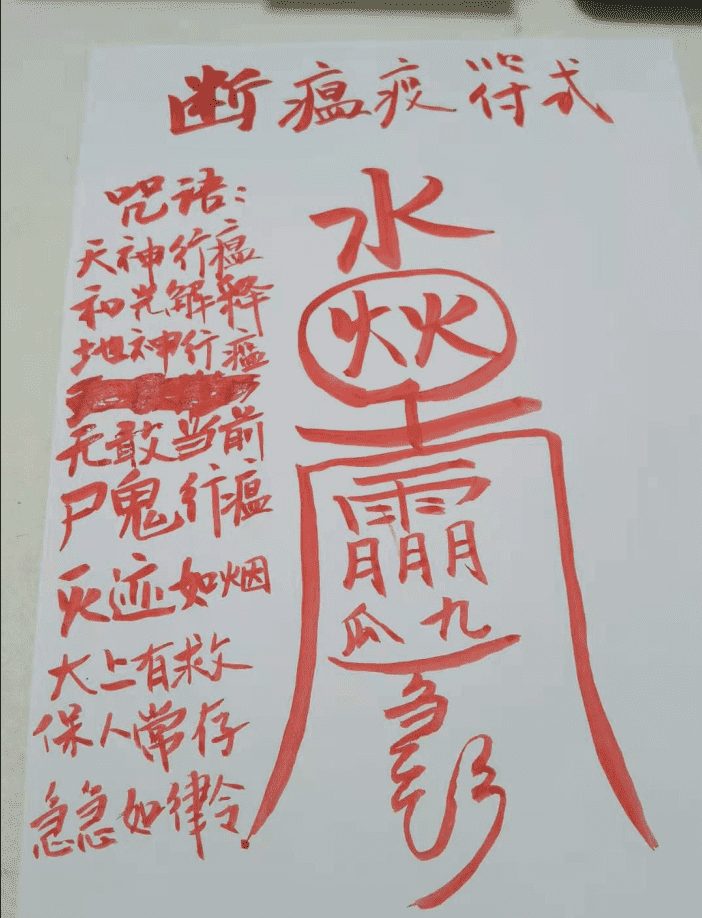 断瘟疫符式
咒语：
天神行瘟
初光解释
地神行瘟
无敢当前
尸鬼行瘟
灭迹如烟
大上有救
保人常存
急急如律令
水
火火
月月月
瓜九